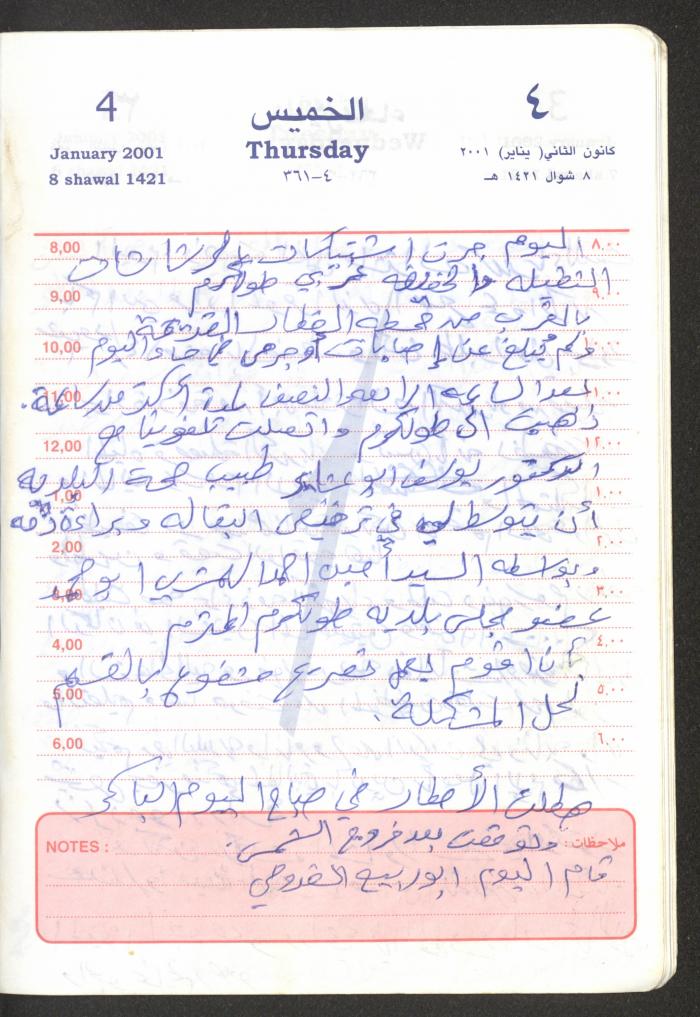 4 الخميس ٤
January 2001 Thursday كانون الثاني( يناير) ٢٠٠١
8 shawal 1421 ٣٦١-٤ ٨ شوال ١٤٢١ هـ
8,00 اليوم جرت اشتباكات بالرشاشات ٨.٠٠
الثقيله والخفيفه غربي طولكرم
9,00 ٩.٠٠
بالقرب من محطه القطار القديمة
10,00 ولم يبلغ عن إصابات أو جرحى صباح اليوم ١٠.٠٠
11,00 بعد الساعه الرابعه والنصف لمدة أكثر من ساعة. ١١.٠٠
ذهبت الى طولكرم واتصلت تلفونيا مع
12,00 ١٢.٠٠
الدكتور يوسف ابو طبيب صحة البلديه
1,00 ١.٠٠
أن يتوسط لي في ترخيص البقاله وبراءة ذمه
2,00 ٢.٠٠
وبواسطه السيد أمين احمد ابو
3,00 ٣.٠٠
عضو مجلس بلديه طولكرم المحترم
4,00 ٤.٠٠
أن اقوم بعمل تصريح مشفوع بالقسم
5,00 ٥.٠٠
لحل المشكلة.
6,00 ٦.٠٠
هطلت الأمطار في صباح اليوم الباكر
NOTES : ملاحظات: وتوقفت بعد خروج الشمس.
قام اليوم ابو ربيع